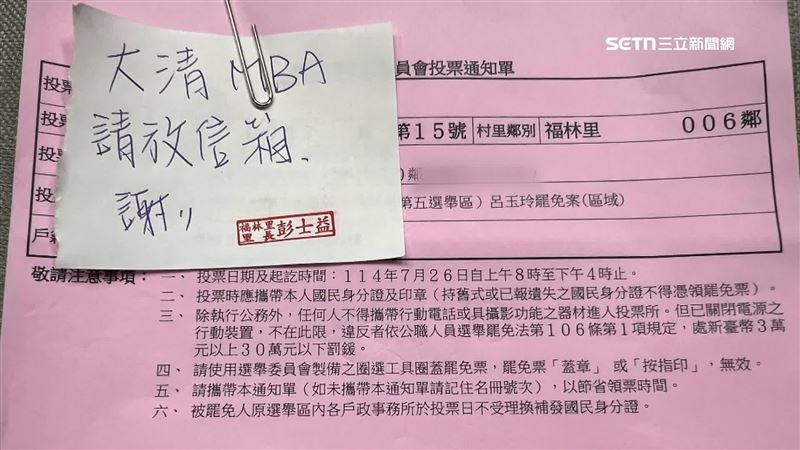 SETN三立新聞網
員會投票通知單
大清 MBA
請放信箱、
謝〃
福林里
里長 彭士益
投票
投票
第15號 村里鄰別 福林里 006鄰
投
)鄰
投
第五選舉區）呂玉玲罷免案(區域)
戶籍
敬請注意事項：一、投票日期及起訖時間：114年7月26日自上午8時至下午4時止。
二、投票時應攜帶本人國民身分證及印章（持舊式或已報遺失之國民身分證不得憑領罷免票）。
三、除執行公務外，任何人不得攜帶行動電話或具攝影功能之器材進入投票所。但已關閉電源之
行動裝置，不在此限，違反者依公職人員選舉罷免法第106條第1項規定，處新臺幣3萬
元以上30萬元以下罰鍰。
四、請使用選舉委員會製備之圈選工具圈蓋罷免票，罷免票「蓋章」或「按指印」，無效。
五、請攜帶本通知單（如未攜帶本通知單請記住名冊號次），以節省領票時間。
六、被罷免人原選舉區內各戶政事務所於投票日不受理換補發國民身分證。